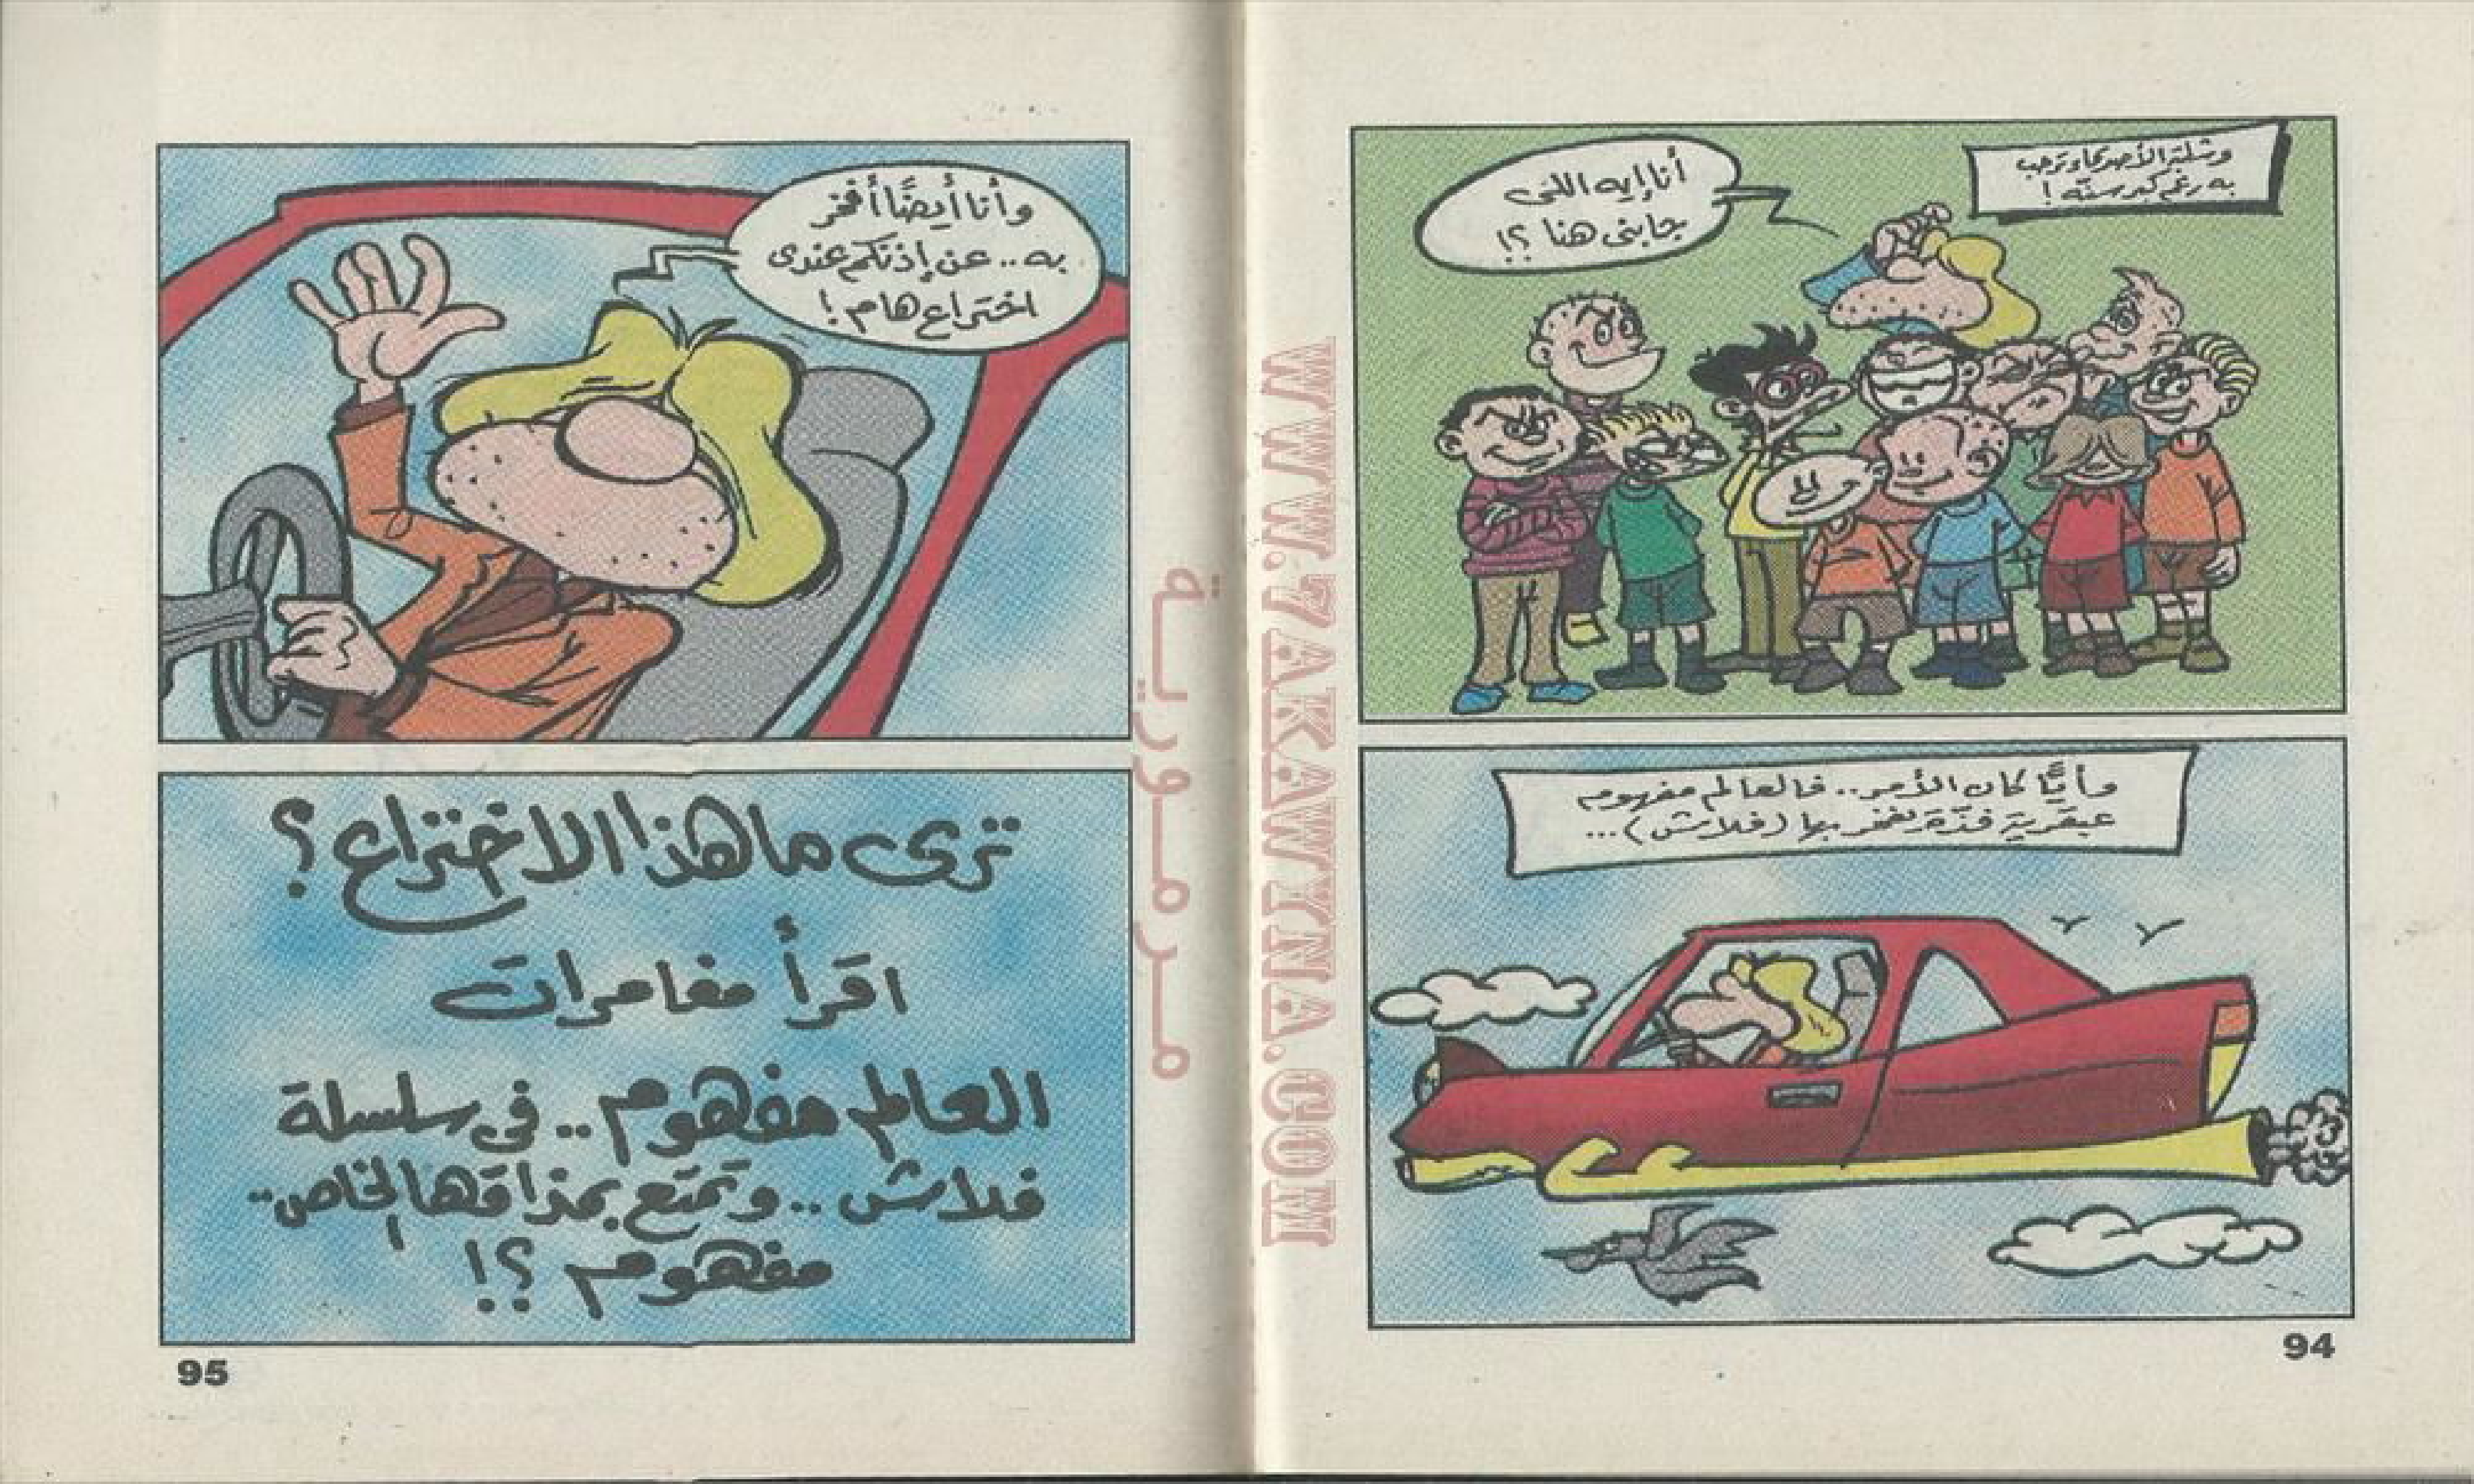 وشلة الأصدقاء ترحب
به رغم كبر سنه !
أنا إيه اللى
جابنى هنا ؟!
وأيًّا كان الأمر.. فالعالم مفهوم
عبقرية فذّة تفخر بها (فلاش)...
94
وأنا أيضًا أفخر
به.. عن إذنكم عندى
اختراع هام !
ترى ما هذا الاختراع ؟
اقرأ مغامرات
العالم مفهوم.. فى سلسلة
فلاش.. وتمتع بمذاقها الخاص..
مفهوم ؟!
95
WWW.7AKAWYNA.COM
مرمورية